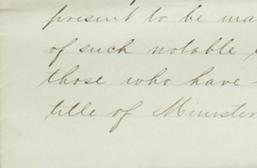 present to be ma
of such notable
those who have
title of Minister